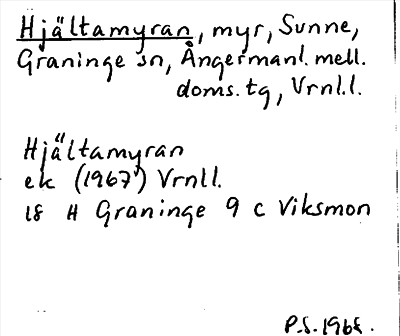 Hjältamyran, myr, Sunne,
Graninge sn, Ångermanl. mell.
doms. tg, Vrnl.l.
Hjältamyran
ek (1967) Vrnll.
18 H Graninge 9 c Viksmon
P.S. 1968.